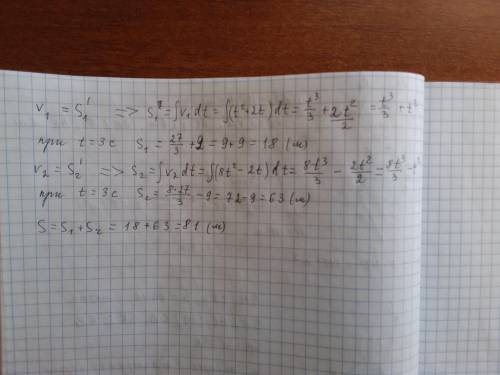 v₁ = S₁' => S₁ = ∫v₁dt = ∫(t²+2t)dt = t³/3 + 2t²/2 = t³/3 + t²
при t = 3 c S₁ = 27/3 + 9 = 9 + 9 = 18 (м)
v₂ = S₂' => S₂ = ∫v₂dt = ∫(8t² - 2t)dt = 8t³/3 - 2t²/2 = 8t³/3 - t²
при t = 3 c S₂ = 8·27/3 - 9 = 72 - 9 = 63 (м)
S = S₁ + S₂ = 18 + 63 = 81 (м)